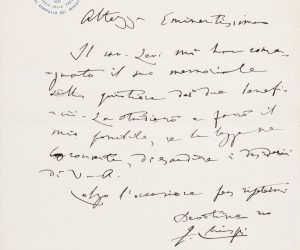 Altezza Eminentissima
Il cav. Levi mi ha conse
gnato il suo memoriale
sulla quistione dei due benefi
cii. Lo studierò e farò il
mio possibile, se la legge me
lo consente, di esaudire i desideri
di V. A.
Colgo l'occasione per ripetermi
Devotissimo
F. Crispi